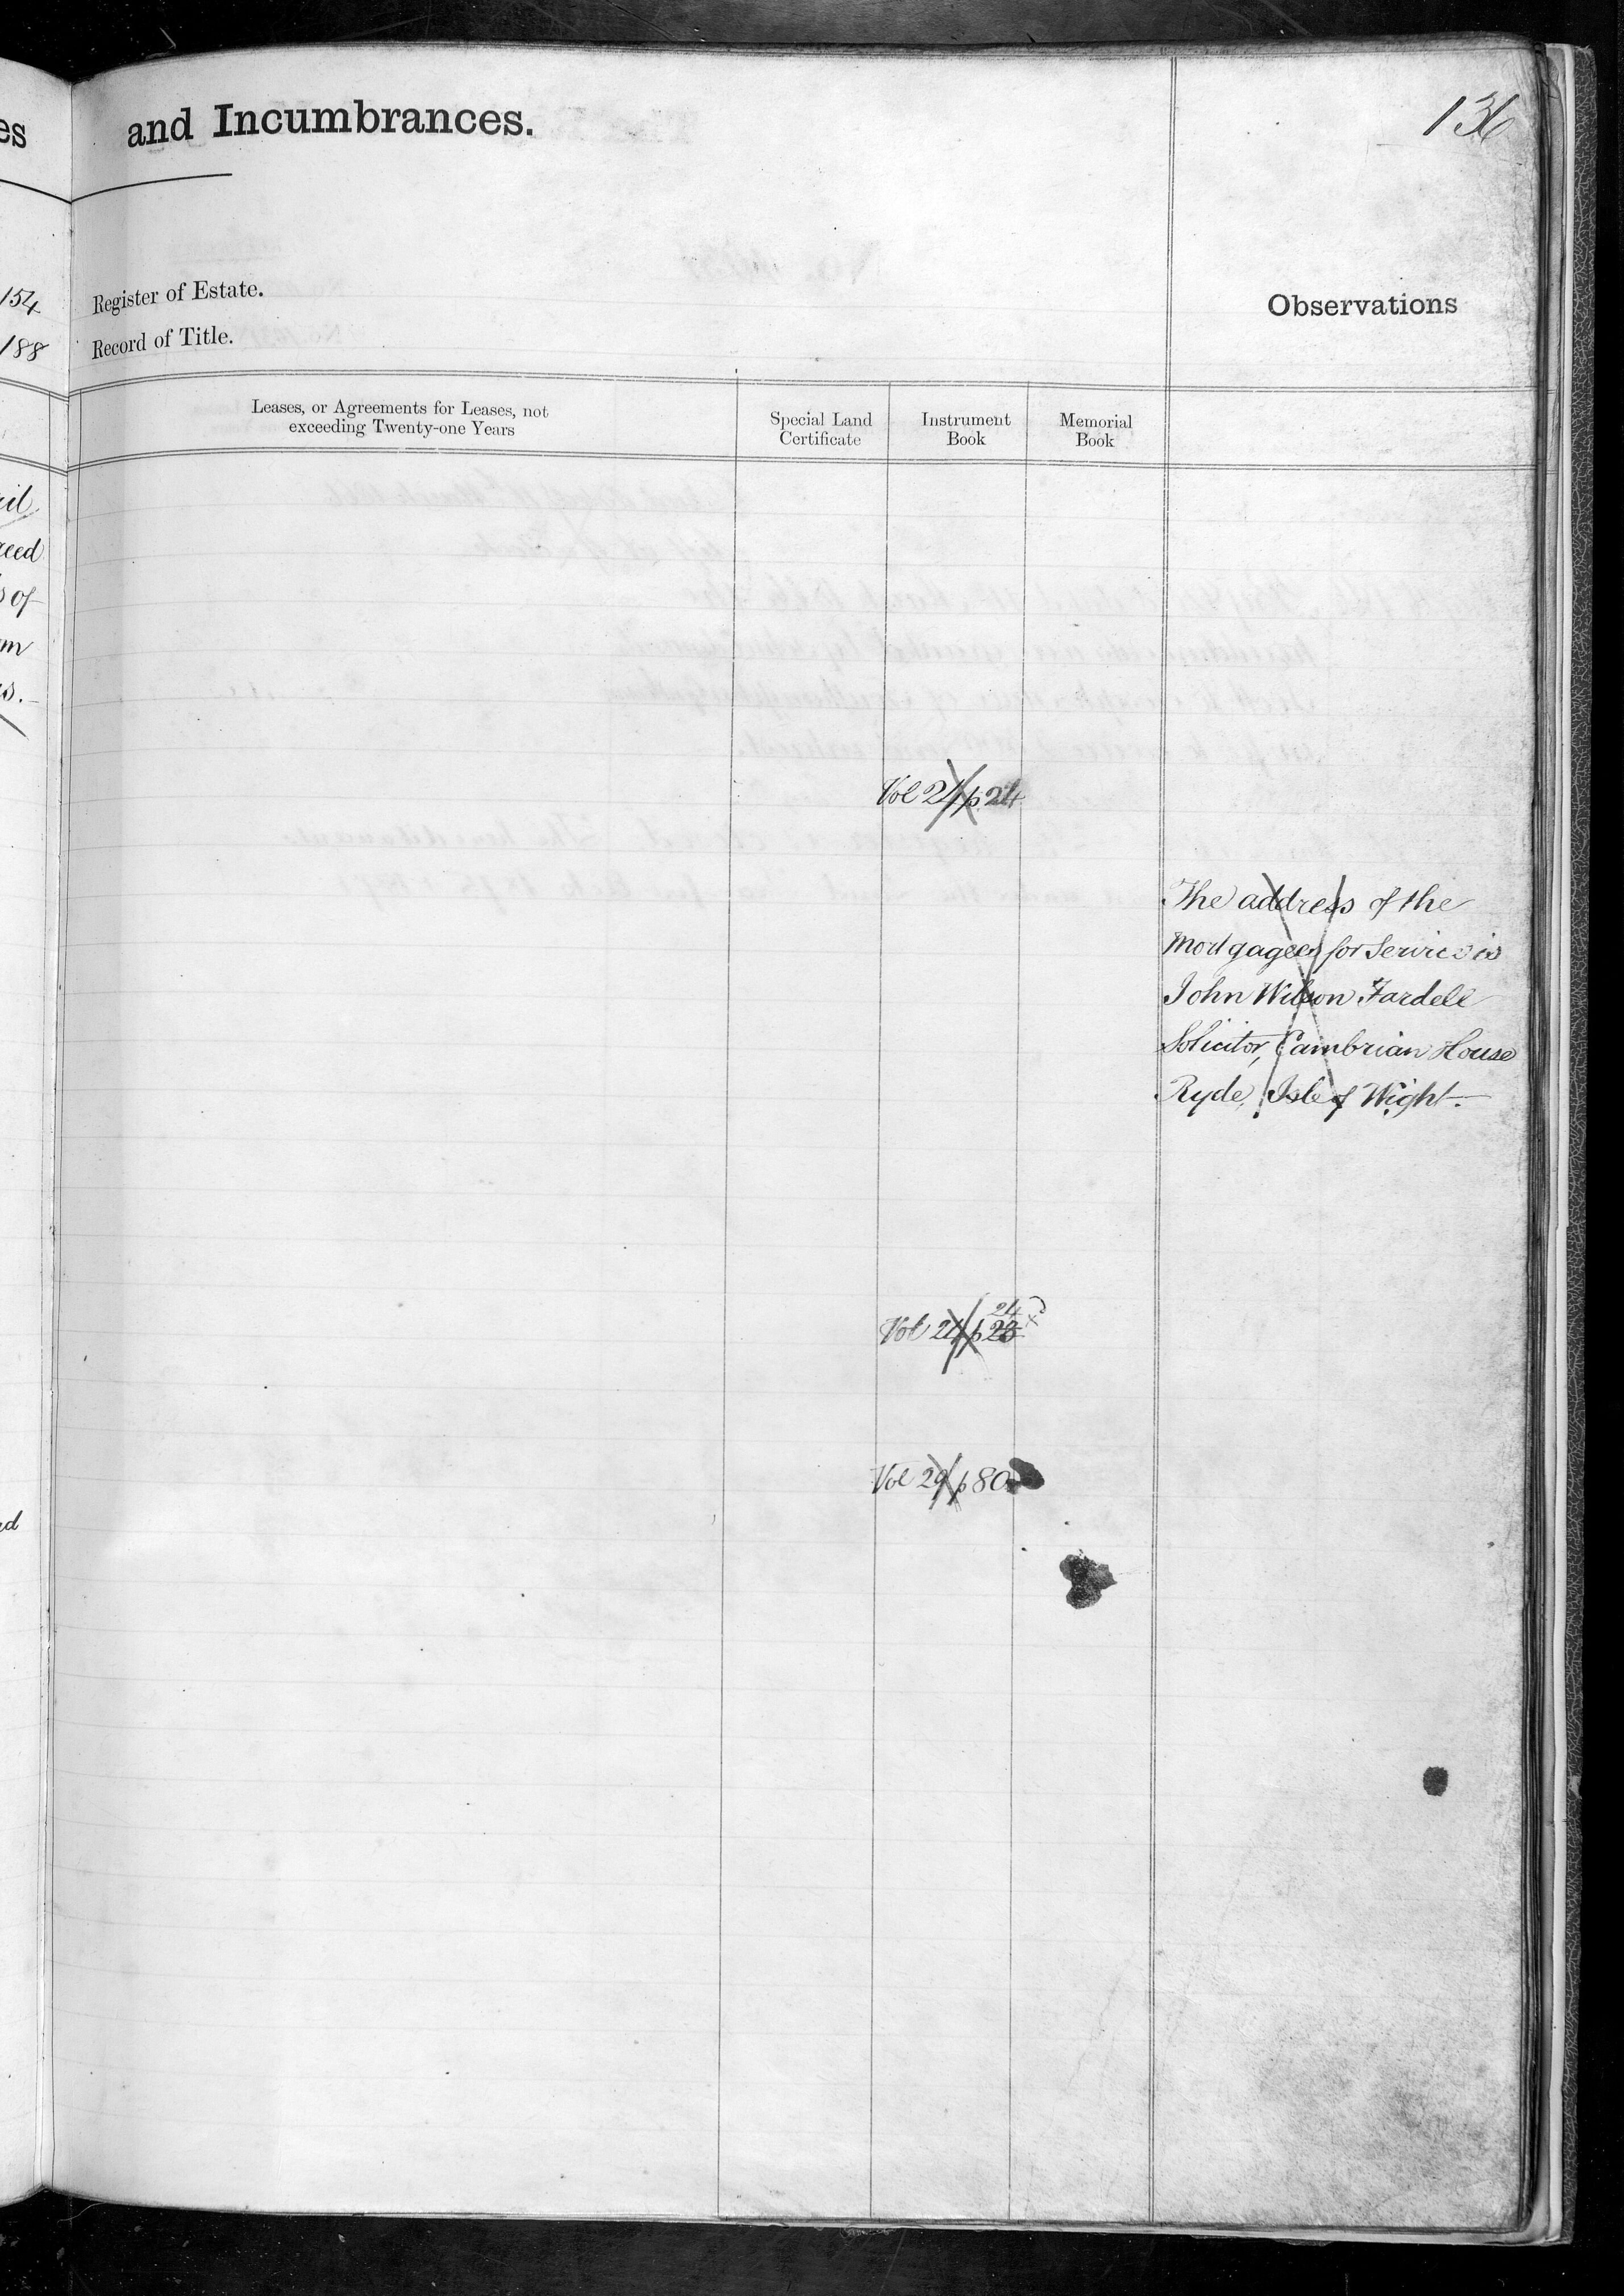 es
and Incumbrances.
136
154
Register of Estate.
188
Record of Title.
Observations
Leases, or Agreements for Leases, not
exceeding Twenty-one Years
Special Land
Certificate
Instrument
Book
Memorial
Book
reed
of
Vol 21 p 24
The address of the
Mortgagees for Service is
John Wilson Fardell
Solicitor, Cambrian House
Ryde, Isle of Wight.
24
Vol 21 p 23
Vol 29 p 80